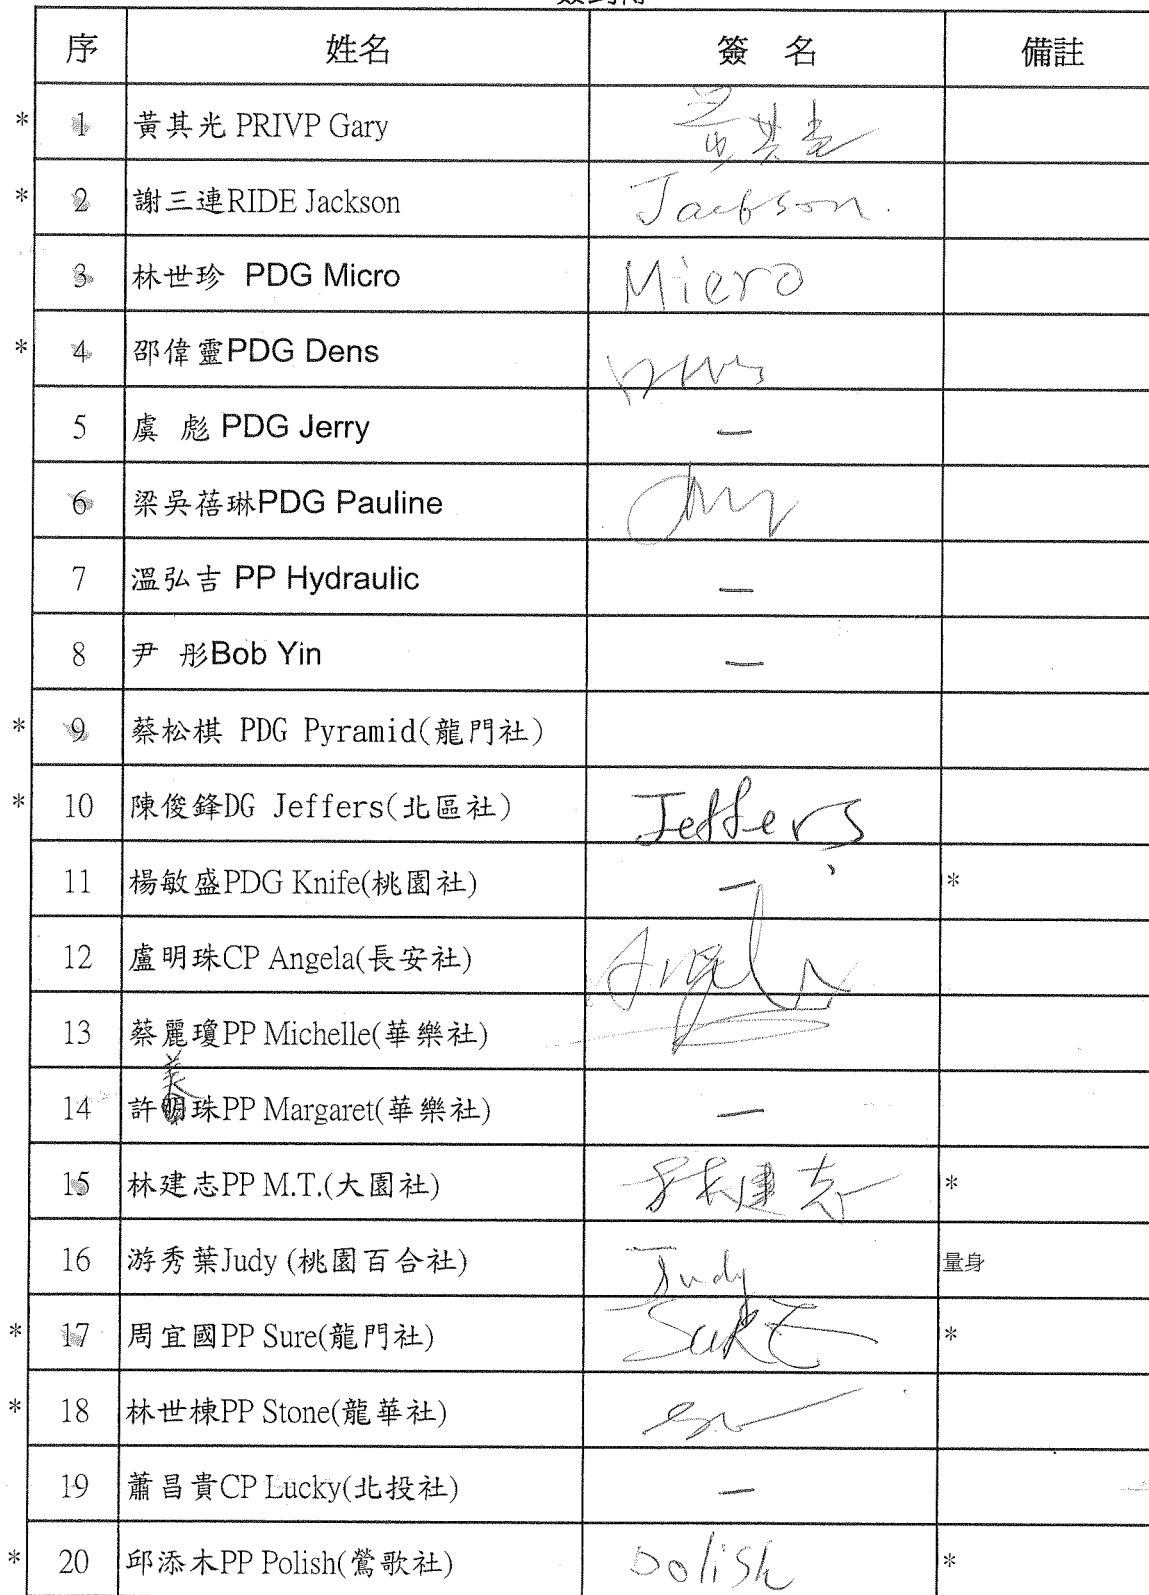 序 姓名 簽 名 備註
* 1 黃其光 PRIVP Gary 黃其光
* 2 謝三連RIDE Jackson Jackson.
3 林世珍 PDG Micro Micro
* 4 邵偉靈PDG Dens
5 虞 彪 PDG Jerry —
6 梁吳蓓琳PDG Pauline
7 溫弘吉 PP Hydraulic —
8 尹 彤Bob Yin —
* 9 蔡松棋 PDG Pyramid(龍門社)
* 10 陳俊鋒DG Jeffers(北區社) Jeffers
11 楊敏盛PDG Knife(桃園社) — *
12 盧明珠CP Angela(長安社) Angela
13 蔡麗瓊PP Michelle(華樂社)
14 許美珠PP Margaret(華樂社) —
15 林建志PP M.T.(大園社) 林建志 *
16 游秀葉Judy (桃園百合社) Judy 量身
* 17 周宜國PP Sure(龍門社) SURE *
* 18 林世棟PP Stone(龍華社)
19 蕭昌貴CP Lucky(北投社) —
* 20 邱添木PP Polish(鶯歌社) Polish *